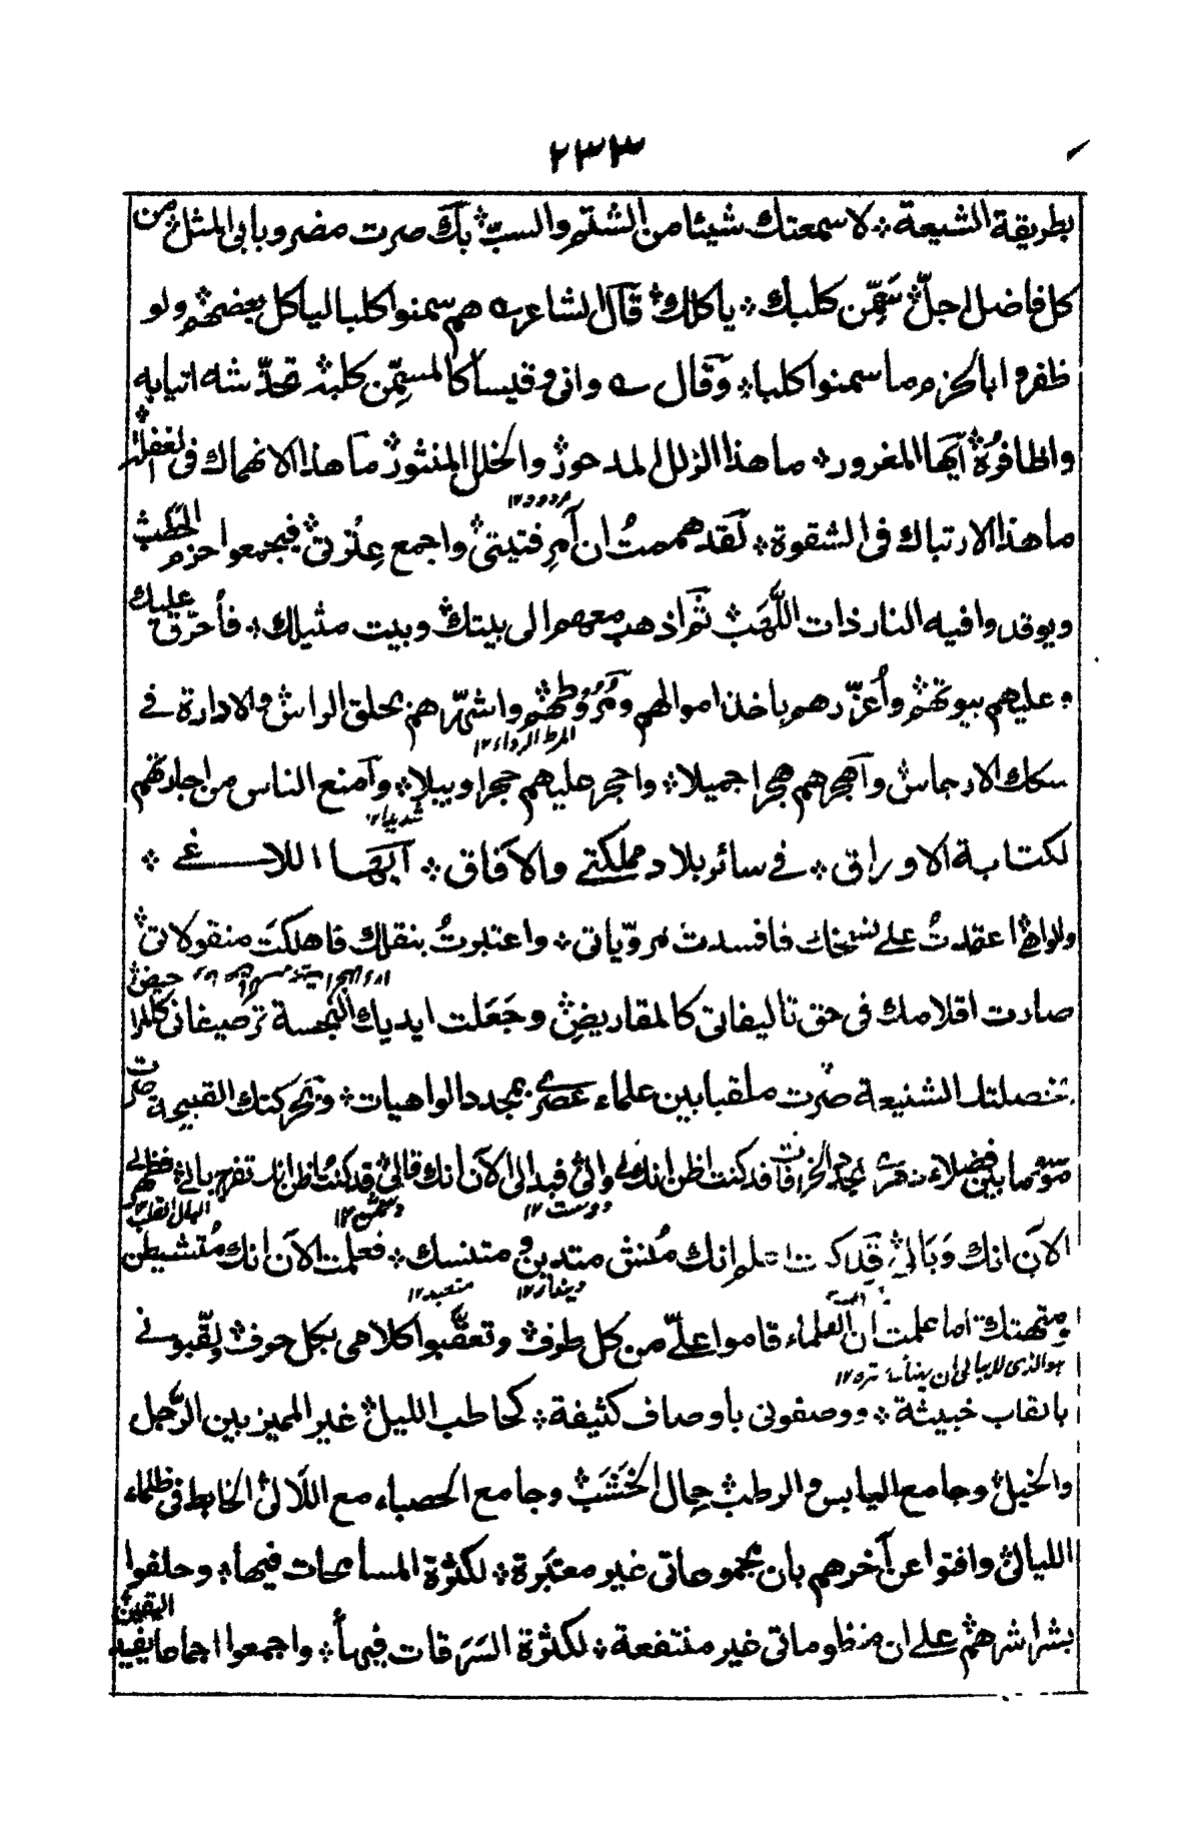 ٢٣٣
بطريقة الشيعة ؞ لا سمعتك شيئا من الشتم والسبّ ؞ بك صرت مضروبا بى المثل ؞ من
كل فاضل اجلّ ؞ سَمِّن كلبك ؞ ياكلك ؞ قال الشاعر ؎ هم سمنوا كلبا لياكل بعضهم ؞ ولو
ظفروا بالحزم ما سمنوا كلبا ؞ وقال ؎ وانى وقيسا كالمسمّن كلبه ؞ تخدّشه انيابه
واظافره ؞ ايها المغرور ؞ ما هذا الزلل المدحور ؞ والخلل المنثور ؞ ما هذا الانهماك فى الغفلة ؞
مردود ١٢
ما هذا الارتباك فى الشقوة ؞ لقد هممتُ ان آمر فتيتى ؞ واجمع عِترتى ؞ فيجمعوا حزم الحطب ؞
ويوقدوا فيه النار ذات اللَّهَب ؞ ثم اذهب معهم الى بيتك ؞ وبيت مثيلك ؞ فأحرّق عليك
وعليهم بيوتهم ؞ وأعزّرهم باخذ اموالهم ومُرُوطهم ؞ واشهّرهم بحلق الراس ؞ والادارة فے
المرط الرداء ١٢
سكك الارجاس ؞ وآهجرهم هجرا جميلا ؞ واحجر عليهم حجرا وبيلا ؞ وآمنع الناس من اجارتهم
شديدا ١٢
لكتابة الاوراق ؞ فے سائر بلاد مملكتے والآفاق ؞ آيها اللاغے ؞
والواهى ؞ اعتمدتُ علے نسخك فافسدت مروّياتى ؞ واعتبرتُ بنقلك فاهلكت منقولاتى ؞
صارت اقلامك فى حق تاليفاتى كالمقاريض ؞ وجَعَلت ايديك النجسة ترصيفاتى كالمرا حيض ؞
بخصلتك الشنيعة صرت ملقبا بين علماء عصرے بمجدد الواهيات ؞ وبحركتك القبيحة صرت
موسوما بين فضلاء دهرے بمجدد الخرافات ؞ قد كنت اظن انك لے والى ؞ فبدا لى الآن انك قالى ؞ قد كنت اظن انك تفرح بالے ؞ فظهر لے
دوست ١٢ دشمن ١٢ البال القلب ١٢
الآن انك وَبَالى ؞ قد كنت اعلم انك مُنش متدين ؞ و متنسك ؞ فعلمت الآن انك مُتشيطن
ديندار ١٢ متعبد ١٢
ومتهتك ؞ اما علمت ان العلماء قاموا علےّ من كل طرف ؞ وتعقَّبوا كلامى بكل حرف ؞ ولقّبونے
هو الذى لا يبالى ان يهتك ستره ١٢
بالقاب خبيثة ؞ ووصفونى باوصاف كثيفة ؞ كحاطب الليل ؞ غير المميز بين الرّجل
والخيل ؞ وجامع اليابس والرطب ؞ حمال الخشَب ؞ وجامع الحصباء مع اللآلى ؞ الخابط فى ظلماء
الليالى ؞ وافتوا عن آخرهم بان مجموعاتى غير معتبرة ؞ لكثرة المسامحات فيها ؞ وحلفوا
بشراشرهم ؞ علے ان منظوماتى غير منتفعة ؞ لكثرة السَرَقات فيها ؞ واجمعوا اجماعا يفيد اليقين ؞